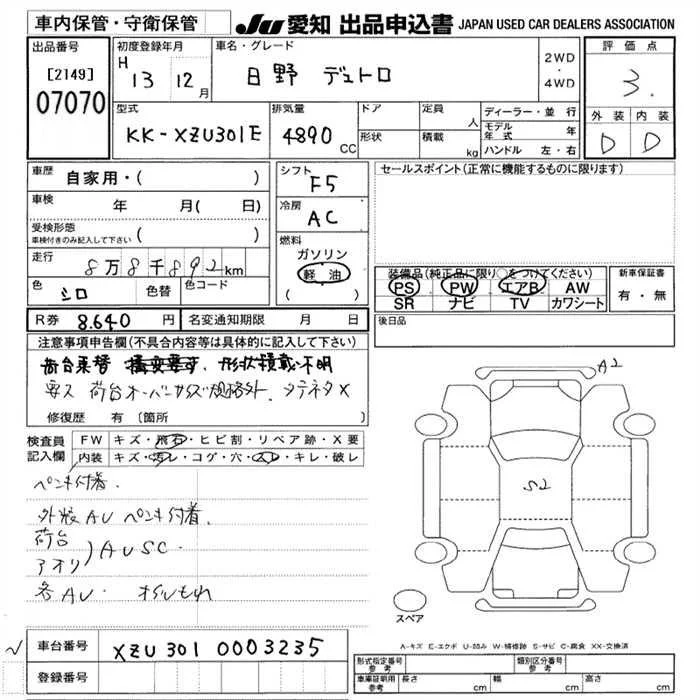 車内保管・守衛保管
JU 愛知 出品申込書 JAPAN USED CAR DEALERS ASSOCIATION
出品番号
[2149]
07070
初度登録年月
H 13 12月
車名・グレード
日野 デュトロ
2WD
・
4WD
評価点
3.
外装 内装
D D
型式
KK-XZU301E
排気量
4890 CC
ドア
形状
定員 人
積載 kg
ディーラー・並行
モデル年式 年
ハンドル 左・右
車歴 自家用・( )
車検 年 月( 日)
受検形態
車検付きのみ記入して下さい ( )
走行 8万8千892km
色 シロ 色替 色コード
シフト
F5
冷房
AC
燃料
ガソリン
軽油
( )
セールスポイント(正常に機能するものに限ります)
装備品(純正品に限り○をつけてください)
PS PW エアB AW
SR ナビ TV カワシート
新車保証書
有・無
後日品
R券 8.640 円 名変通知期限 月 日
注意事項申告欄(不具合内容等は具体的に記入して下さい)
荷台乗替 形状積載不明
荷台オーバーサイズ規格外、タテネタX
修復歴 有 〔箇所
検査員記入欄
FW キズ・飛石・ヒビ割・リペア跡・X要
内装 キズ・汚レ・コゲ・穴・スレ・キレ・破レ
ペンキ付着
外板AU ペンキ付着.
荷台
アオリ ) AUSC.
各AU. オイルもれ
A2
S2
スペア
A-キズ E-エクボ U-凹み W-補修跡 S-サビ C-腐食 XX-交換済
車台番号 XZU301 0003235
登録番号
形式指定番号 参考
類別区分番号 参考
車庫証明用 参考 長さ cm 幅 cm 高さ cm